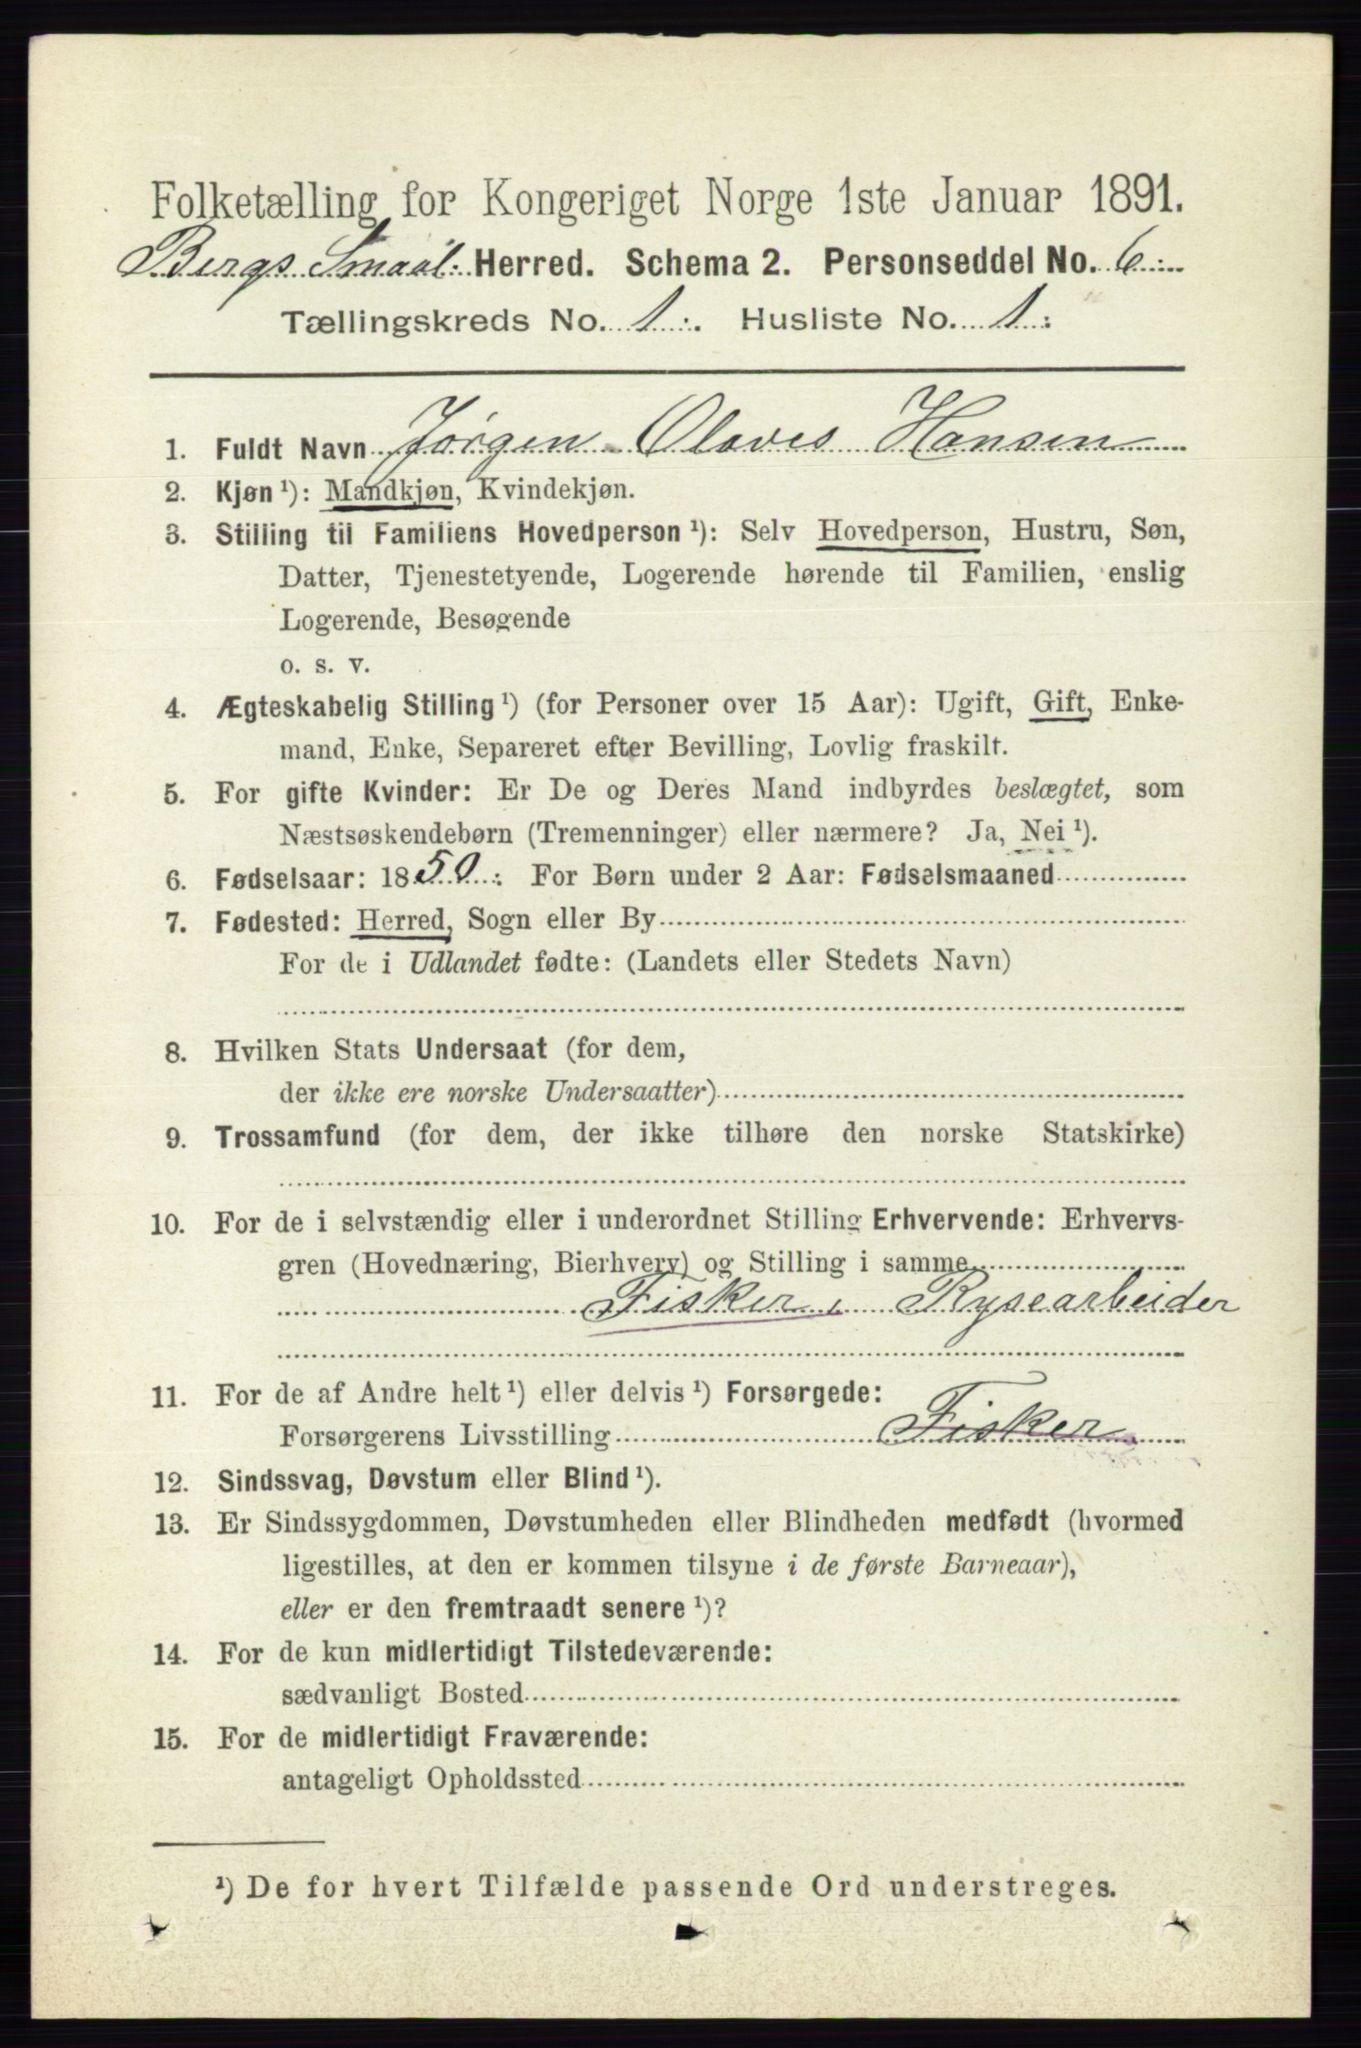 Folketælling for Kongeriget Norge 1ste Januar 1891.
Bergs Smaal: Herred. Schema 2. Personseddel No. 6:
Tællingskreds No. 1:. Husliste No. 1:
1. Fuldt Navn Jørgen Olaves Hansen
2. Kjøn ¹): Mandkjøn, Kvindekjøn.
3. Stilling til Familiens Hovedperson ¹): Selv Hovedperson, Hustru, Søn,
Datter, Tjenestetyende, Logerende hørende til Familien, enslig
Logerende, Besøgende
o. s. v.
4. Ægteskabelig Stilling ¹) (for Personer over 15 Aar): Ugift, Gift, Enke-
mand, Enke, Separeret efter Bevilling, Lovlig fraskilt.
5. For gifte Kvinder: Er De og Deres Mand indbyrdes beslægtet, som
Næstsøskendebørn (Tremenninger) eller nærmere? Ja, Nei ¹).
6. Fødselsaar: 1850: For Børn under 2 Aar: Fødselsmaaned
7. Fødested: Herred, Sogn eller By
For de i Udlandet fødte: (Landets eller Stedets Navn)
8. Hvilken Stats Undersaat (for dem,
der ikke ere norske Undersaatter)
9. Trossamfund (for dem, der ikke tilhøre den norske Statskirke)
10. For de i selvstændig eller i underordnet Stilling Erhvervende: Erhvervs-
gren (Hovednæring, Bierhverv) og Stilling i samme
Fisker, Rysearbeider
11. For de af Andre helt ¹) eller delvis ¹) Forsørgede:
Forsørgerens Livsstilling Fisker
12. Sindssvag, Døvstum eller Blind ¹).
13. Er Sindssygdommen, Døvstumheden eller Blindheden medfødt (hvormed
ligestilles, at den er kommen tilsyne i de første Barneaar),
eller er den fremtraadt senere ¹)?
14. For de kun midlertidigt Tilstedeværende:
sædvanligt Bosted
15. For de midlertidigt Fraværende:
antageligt Opholdssted
¹) De for hvert Tilfælde passende Ord understreges.